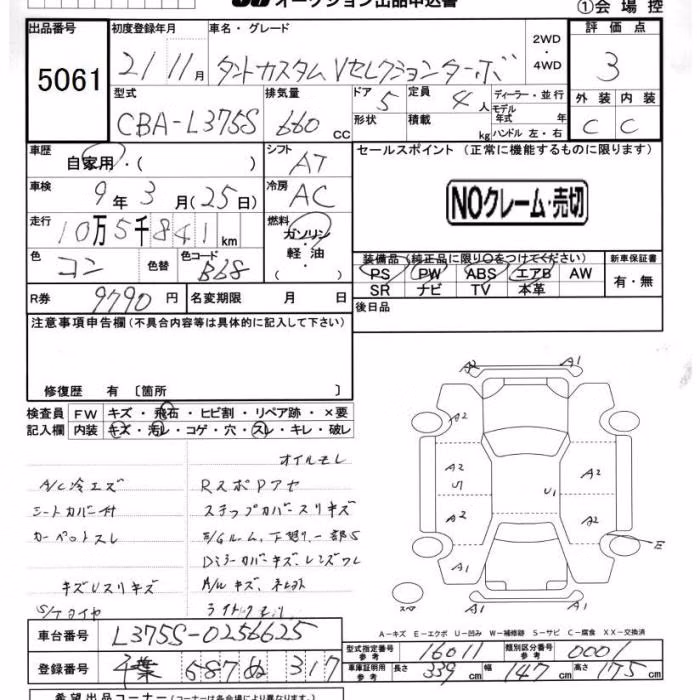 オークション出品申込書
①会場控
出品番号
5061
初度登録年月
21 11月
車名・グレード
タントカスタム Vセレクションターボ
2WD
・
4WD
評価点
3
型式
CBA-L375S
排気量
660 cc
ドア
5
形状
定員
4人
積載
kg
ディーラー・並行
モデル年式 年
ハンドル 左・右
外装 内装
C C
車歴
自家用・( )
シフト
AT
セールスポイント (正常に機能するものに限ります)
車検
9年3月(25日)
冷房
AC
NOクレーム・売切
走行
10万5千841km
燃料
ガソリン・
軽油
色
コン
色替
色コード
B68
装備品(純正品に限り○をつけてください)
PS PW ABS エアB AW
SR ナビ TV 本革
新車保証書
有・無
R券 9790円
名変期限 月 日
後日品
注意事項申告欄(不具合内容等は具体的に記入して下さい)
修復歴 有 〔箇所 〕
検査員 FW キズ・飛石・ヒビ割・リペア跡・×要
記入欄 内装 キズ・汚レ・コゲ・穴・スレ・キレ・破レ
オイルモレ
A/C冷エズ
シートカバー付
カーペットスレ
キズUスリキズ
ステップカバースリキズ
A1 A1
A2 A2
A2 A2
U1 U1
A2 A2
A1 A1
E
スペア
A-キズ E-エクボ U-凹み W-補修跡 S-サビ C-腐食 XX-交換済
車台番号 L375S-0256625
型式指定番号 参考 16011
類別区分番号 参考 0001
登録番号 千葉 587 ぬ 317
車庫証明用 参考 長さ 339cm 幅 147cm 高さ 175cm
希望出品コーナー(コーナーは各会場により異なります。)